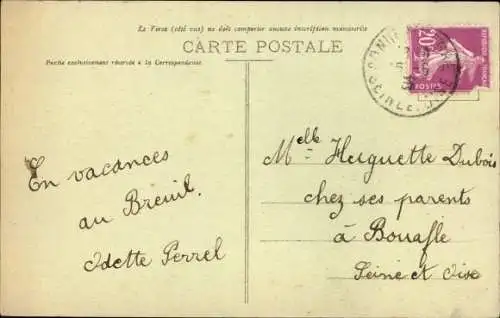 Le Verso (côté vue) ne doit comporter aucune inscription manuscrite
CARTE POSTALE
Partie exclusivement réservée à la Correspondance
20c
REPUBLIQUE FRANÇAISE
POSTES
En vacances
au Breuil.
Odette Perrel
Melle Huguette Dubois
chez ses parents
à Bouafle
Seine et Oise